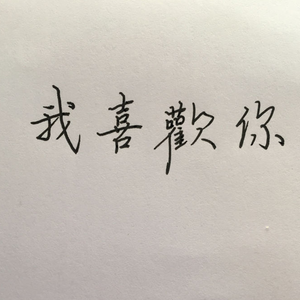 我喜歡你